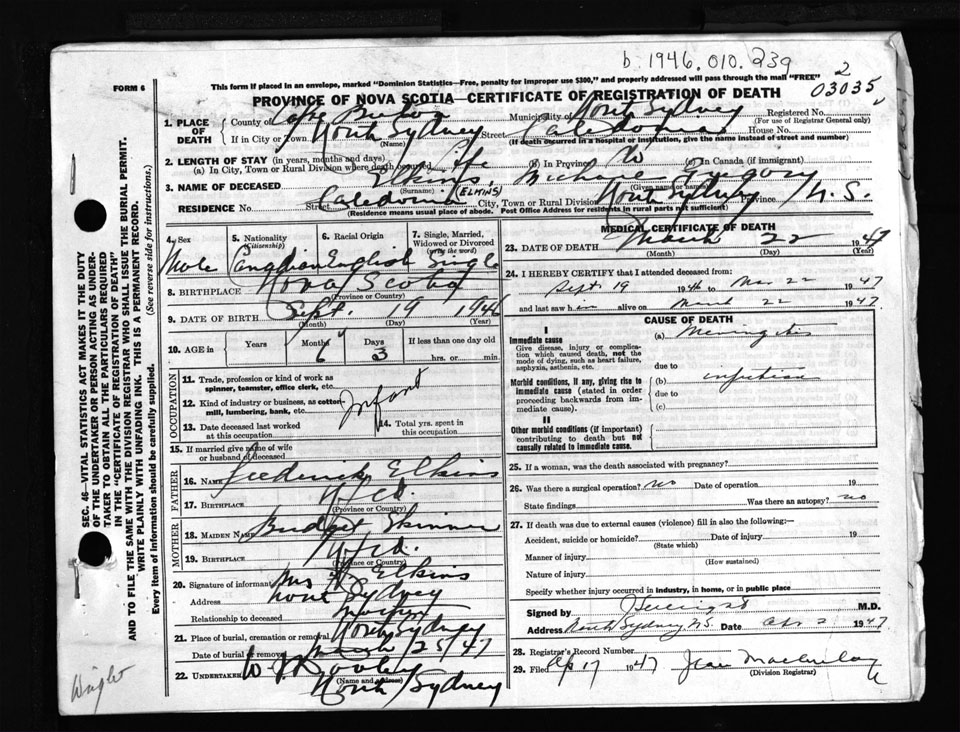 b. 1946.010.239
2
03035
FORM 6
This form if placed in an envelope, marked "Dominion Statistics—Free, penalty for improper use $300," and properly addressed will pass through the mail "FREE"
PROVINCE OF NOVA SCOTIA—CERTIFICATE OF REGISTRATION OF DEATH
1. PLACE OF DEATH
County of Cape Breton Municipality of North Sydney Registered No.
(For use of Registrar General only)
If in City or Town North Sydney Street Caledonia House No.
(Name) (If death occurred in a hospital or institution, give the name instead of street and number)
2. LENGTH OF STAY (in years, months and days)
(a) In City, Town or Rural Division where death occurred life (b) In Province (c) In Canada (if immigrant)
3. NAME OF DECEASED Elkins (ELKINS) Michael Gregory
(Surname) (Given name or names)
RESIDENCE No. Street Caledonia City, Town or Rural Division North Sydney Province N.S.
(Residence means usual place of abode. Post Office Address for residents in rural parts not sufficient)
4. Sex Male
5. Nationality (Citizenship) Canadian
6. Racial Origin English
7. Single, Married, Widowed or Divorced (write the word) Single
8. BIRTHPLACE Nova Scotia
(Province or Country)
9. DATE OF BIRTH Sept. 19 1946
(Month) (Day) (Year)
10. AGE in Years Months 6 Days 3 If less than one day old
hrs. or min.
OCCUPATION
11. Trade, profession or kind of work as spinner, teamster, office clerk, etc.
12. Kind of industry or business, as cotton mill, lumbering, bank, etc.
Infant
13. Date deceased last worked at this occupation
14. Total yrs. spent in this occupation
15. If married give name of wife or husband of deceased
FATHER
16. NAME Frederick Elkins
17. BIRTHPLACE Nfld.
(Province or Country)
MOTHER
18. MAIDEN NAME Bridget Skinner
19. BIRTHPLACE Nfld.
(Province or Country)
20. Signature of informant Mrs Elkins
Address North Sydney
Relationship to deceased mother
21. Place of burial, cremation or removal North Sydney
Date of burial or removal March 25/47
22. UNDERTAKER
(Name and address)
North Sydney
MEDICAL CERTIFICATE OF DEATH
23. DATE OF DEATH March 22 1947
(Month) (Day) (Year)
24. I HEREBY CERTIFY that I attended deceased from:
Sept. 19 1946 to Mar 22 1947
and last saw him alive on March 22 1947
CAUSE OF DEATH
I
Immediate cause
Give disease, injury or complication which caused death, not the mode of dying, such as heart failure, asphyxia, asthenia, etc.
(a) Meningitis
due to
Morbid conditions, if any, giving rise to immediate cause (stated in order proceeding backwards from immediate cause).
(b)
due to
(c)
II
Other morbid conditions (if important) contributing to death but not causally related to immediate cause.
25. If a woman, was the death associated with pregnancy?
26. Was there a surgical operation? no Date of operation 19
State findings Was there an autopsy? no
27. If death was due to external causes (violence) fill in also the following:—
Accident, suicide or homicide? Date of injury 19
(State which)
Manner of injury
(How sustained)
Nature of injury
Specify whether injury occurred in industry, in home, or in public place
Signed by M.D.
Address North Sydney N.S. Date 1947
28. Registrar's Record Number
29. Filed 17 1947 Jean
(Division Registrar)
SEC. 46—VITAL STATISTICS ACT MAKES IT THE DUTY
OF THE UNDERTAKER OR PERSON ACTING AS UNDERTAKER TO OBTAIN ALL THE PARTICULARS REQUIRED
IN THE "CERTIFICATE OF REGISTRATION OF DEATH"
AND TO FILE THE SAME WITH THE DIVISION REGISTRAR WHO SHALL ISSUE THE BURIAL PERMIT.
WRITE PLAINLY WITH UNFADING INK. THIS IS A PERMANENT RECORD.
Every item of information should be carefully supplied. (See reverse side for instructions.)
Wright